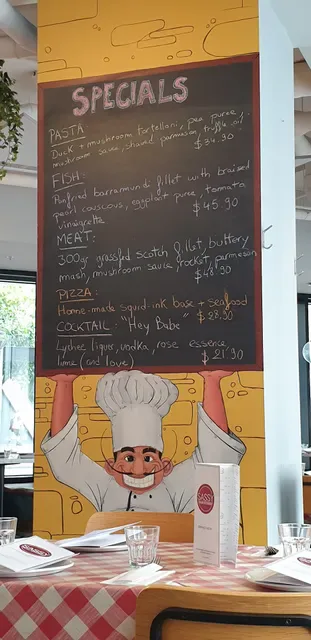 SPECIALS
PASTA:
Duck + mushroom tortelloni, pea puree,
mushroom sauce, shaved parmesan, truffle oil.
$34.90
FISH:
Panfried barramundi fillet with braised
pearl couscous, eggplant puree, tomato
vinaigrette $45.90
MEAT:
300gr grassfed scotch fillet, buttery
mash, mushroom sauce, rocket, parmesan
$48.90
PIZZA:
Home-made squid-ink base + seafood
$28.90
COCKTAIL: "Hey Babe"
Lychee liquer, vodka, rose essence,
lime (and love) $21.90
SASSY